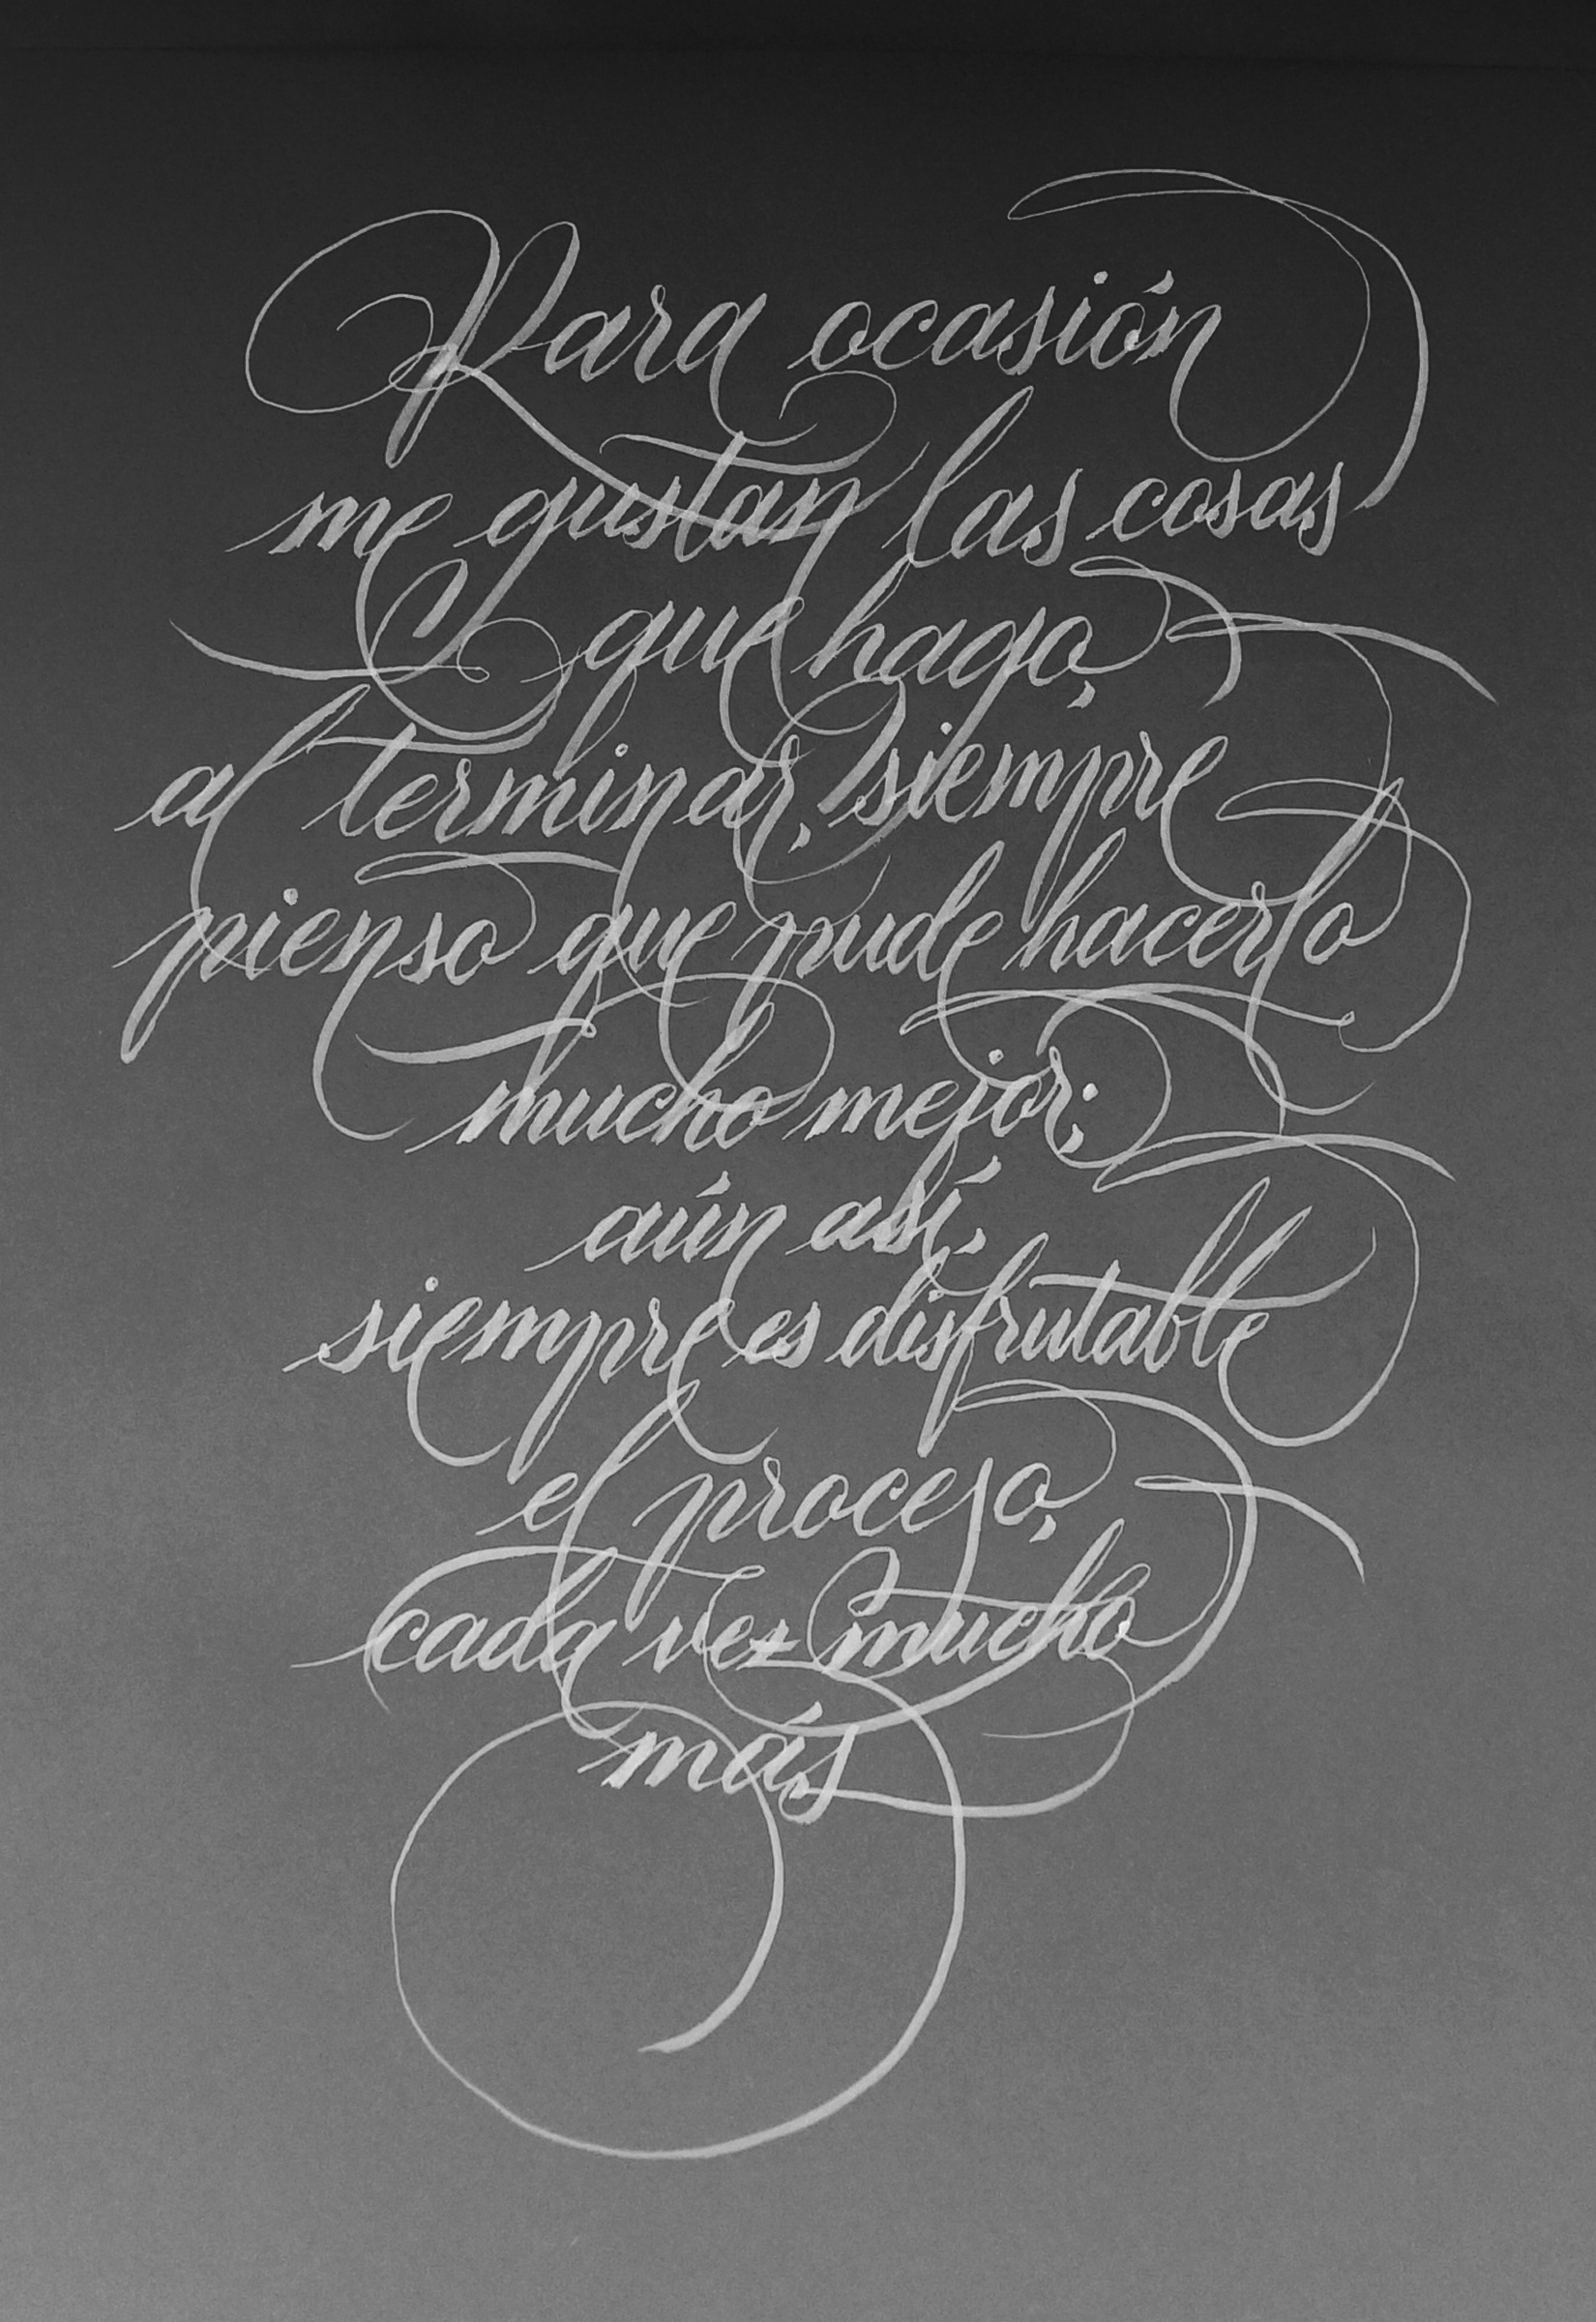 Para ocasión
me gustan las cosas
que hago,
al terminar, siempre
pienso que pude hacerlo
mucho mejor;
aún así,
siempre es disfrutable
el proceso,
cada vez mucho
más